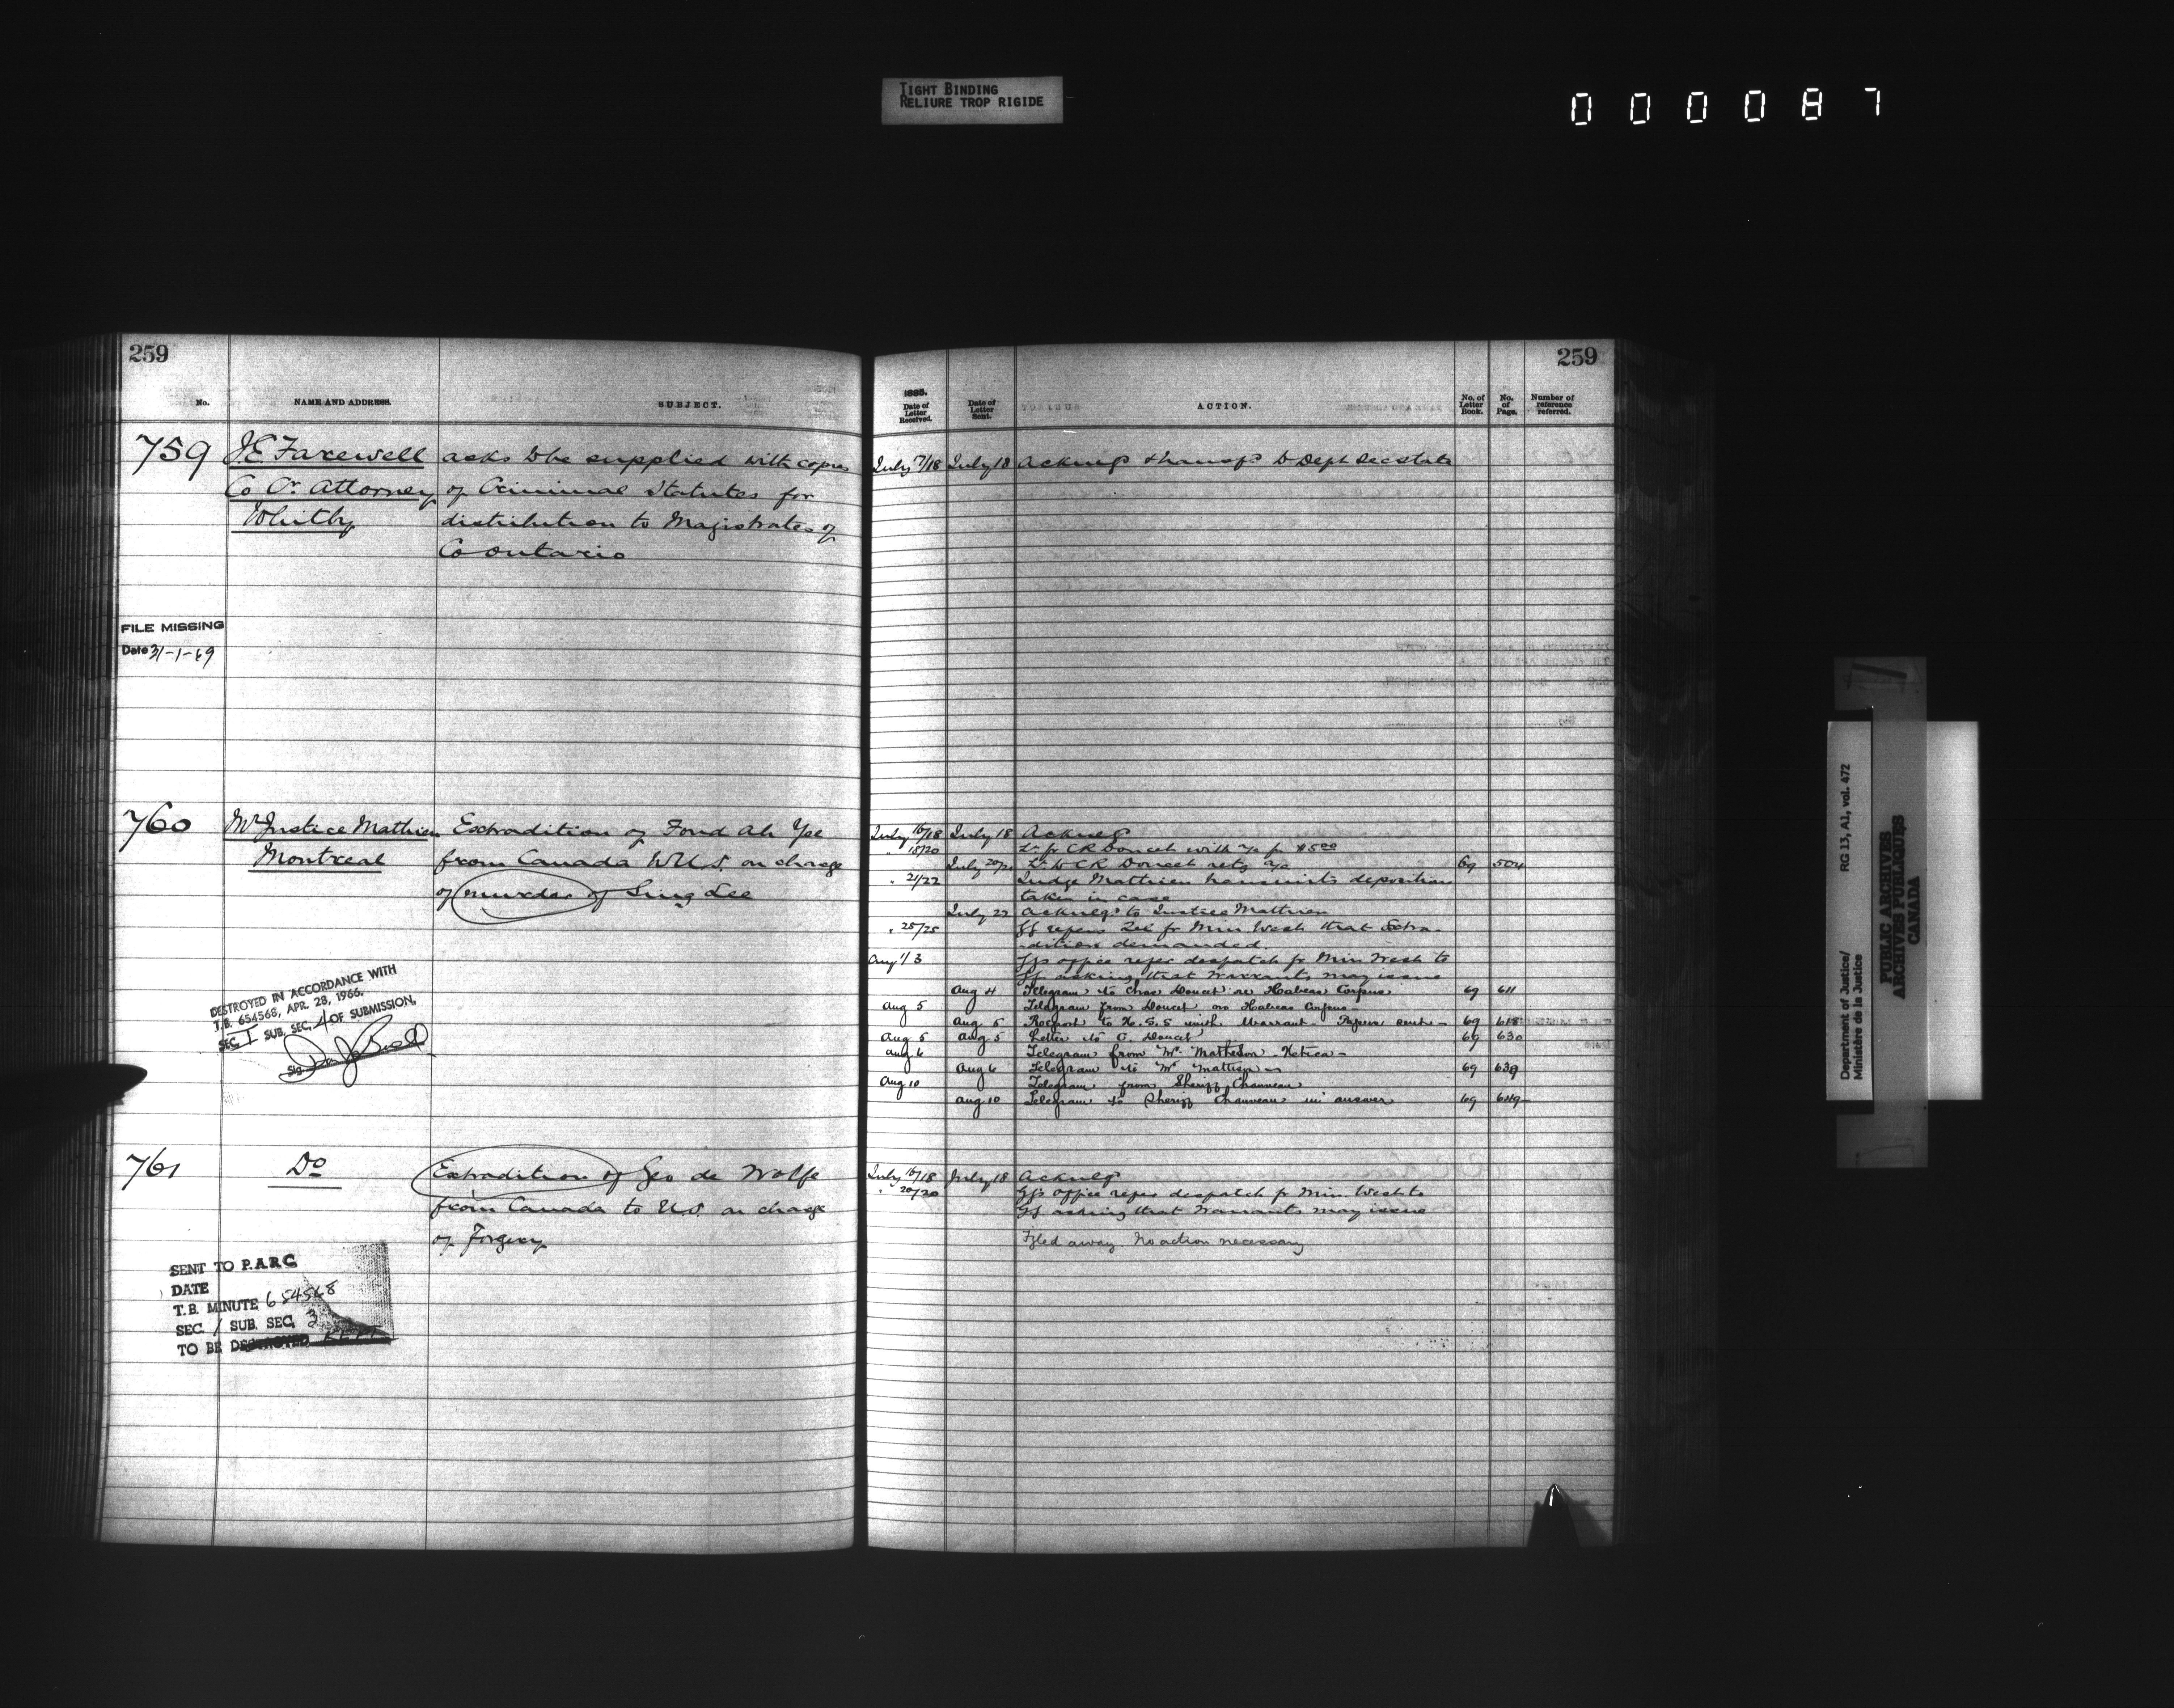 TIGHT BINDING
RELIURE TROP RIGIDE
000087
259
No.
NAME AND ADDRESS.
SUBJECT.
759
J.E. Farewell
Co Cr. Attorney
Whitby
asks to be supplied with copies
of Criminal Statutes for
distribution to Magistrates of
Co Ontario
FILE MISSING
Date 31-1-69
760
Mr Justice Mathieu
Montreal
Extradition of Fond Ah Yee
from Canada to U.S. on charge
of murder of Sing Lee
DESTROYED IN ACCORDANCE WITH
T.B. 654568, APR. 28, 1966.
SEC. I SUB. SEC. 4 OF SUBMISSION.
Sig.
761
Do
Extradition of Geo de Wolfe
from Canada to U.S. on charge
of Forgery
SENT TO P.A.R.C.
DATE
T.B. MINUTE 654568
SEC. 1 SUB. SEC. 3
TO BE DESTROYED
259
1885.
Date of Letter Received.
Date of Letter Sent.
ACTION.
No. of Letter Book.
No. of Page.
Number of reference referred.
July 17/18 July 18 Acknlg & transf to Dept Sec State
July 16/18 July 18 Acknlg
" 18/20 Lr. fr CR Doucet with a/c for $5.00
July 20/21 Lr. to CR Doucet retg a/c 69 504
" 21/22 Judge Mathieu transmits deposition
taken in case
July 22 Acknlg to Justice Mathieu
" 25/25 GG refers Tel fr Min West that Extra-
dition demanded.
Aug 1/3 GGs office refer despatch fr Min West to
GG asking that warrants may issue
Aug 4 Telegram to Chas Doucet re Habeas Corpus 69 611
Aug 5 Telegram from Doucet on Habeas Corpus
Aug 5 Report to H.S.S with Warrant - Papers sent - 69 618
Aug 5 Aug 5 Letter to C. Doucet 69 630
Aug 6 Telegram from Mr. Matheson -
Aug 6 Telegram to Mr Mathieu 69 639
Aug 10 Telegram from Sheriff Chauveau
Aug 10 Telegram to Sheriff Chauveau in answer 69 649
July 16/18 July 18 Acknlg
" 20/20 GG's office refer despatch fr Min. West to
GG asking that Warrants may issue
Filed away. No action necessary
Department of Justice/
Ministère de la Justice
RG 13, A1, vol. 472
PUBLIC ARCHIVES
ARCHIVES PUBLIQUES
CANADA